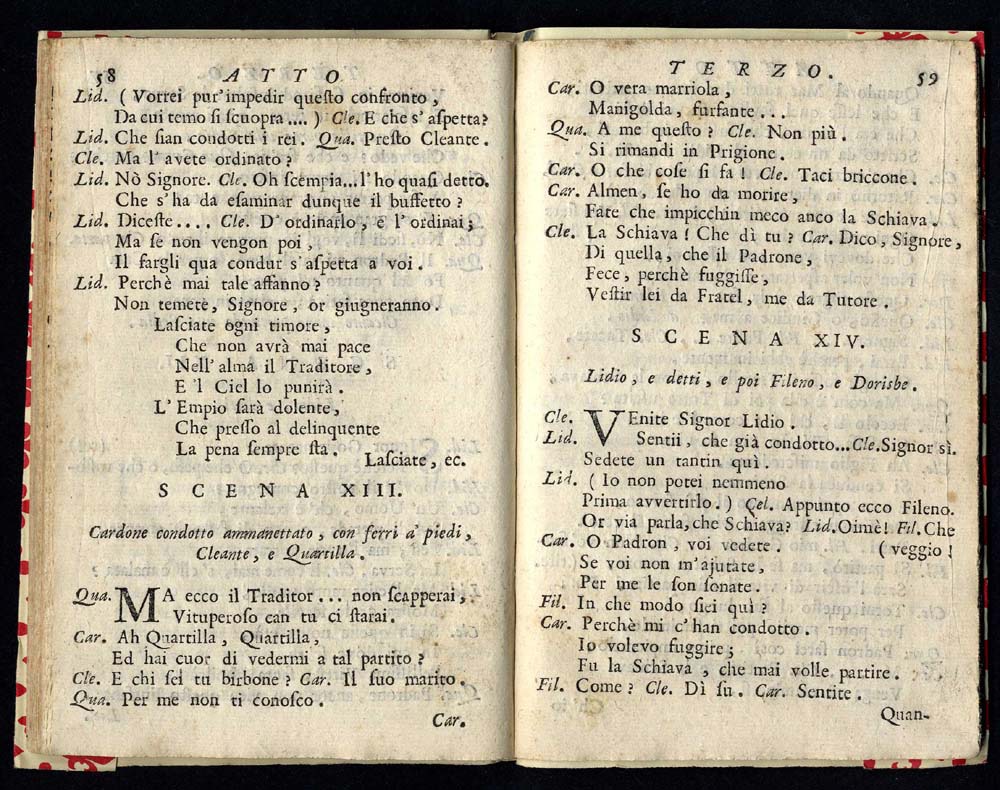 58 ATTO
Lid. ( Vorrei pur'impedir questo confronto ,
Da cui temo si scuopra .... ) Cle. E che s' aspetta?
Lid. Che sian condotti i rei. Qua. Presto Cleante.
Cle. Ma l' avete ordinato ?
Lid. Nò Signore. Cle. Oh scempia...l'ho quasi detto.
Che s'ha da esaminar dunque il buffetto ?
Lid. Diceste .... Cle. D' ordinarlo, e l'ordinai;
Ma se non vengon poi ,
Il fargli qua condur s'aspetta a voi .
Lid. Perchè mai tale affanno ?
Non temete, Signore, or giugneranno.
Lasciate ogni timore,
Che non avrà mai pace
Nell' alma il Traditore ,
E 'l Ciel lo punirà .
L' Empio sarà dolente,
Che presso al delinquente
La pena sempre sta .
Lasciate, ec.
SCENA XIII.
Cardone condotto ammanettato, con ferri a' piedi,
Cleante, e Quartilla.
Qua. MA ecco il Traditor ... non scapperai,
Vituperoso can tu ci starai.
Car. Ah Quartilla, Quartilla,
Ed hai cuor di vedermi a tal partito ?
Cle. E chi sei tu birbone ? Car. Il suo marito.
Qua. Per me non ti conosco .
Car.
TERZO. 59
Car. O vera marriola ,
Manigolda, furfante ...
Qua. A me questo ? Cle. Non più .
Si rimandi in Prigione .
Car. O che cose si fa ! Cle. Taci briccone .
Car. Almen, se ho da morire,
Fate che impicchin meco anco la Schiava .
Cle. La Schiava ! Che dì tu ? Car. Dico, Signore,
Di quella, che il Padrone,
Fece, perchè fuggisse,
Vestir lei da Fratel, me da Tutore .
SCENA XIV.
Lidio, e detti, e poi Fileno, e Dorisbe.
Cle. VEnite Signor Lidio .
Lid. Sentii, che già condotto...Cle.Signor sì.
Sedete un tantin quì .
Lid. ( Io non potei nemmeno
Prima avvertirlo . ) Cel. Appunto ecco Fileno.
Or via parla, che Schiava? Lid.Oimè! Fil.Che
Car. O Padron, voi vedete . ( veggio !
Se voi non m'ajutate,
Per me le son sonate .
Fil. In che modo siei quì ?
Car. Perchè mi c'han condotto .
Io volevo fuggire ;
Fu la Schiava , che mai volle partire .
Fil. Come ? Cle. Dì su . Car. Sentite .
Quan-